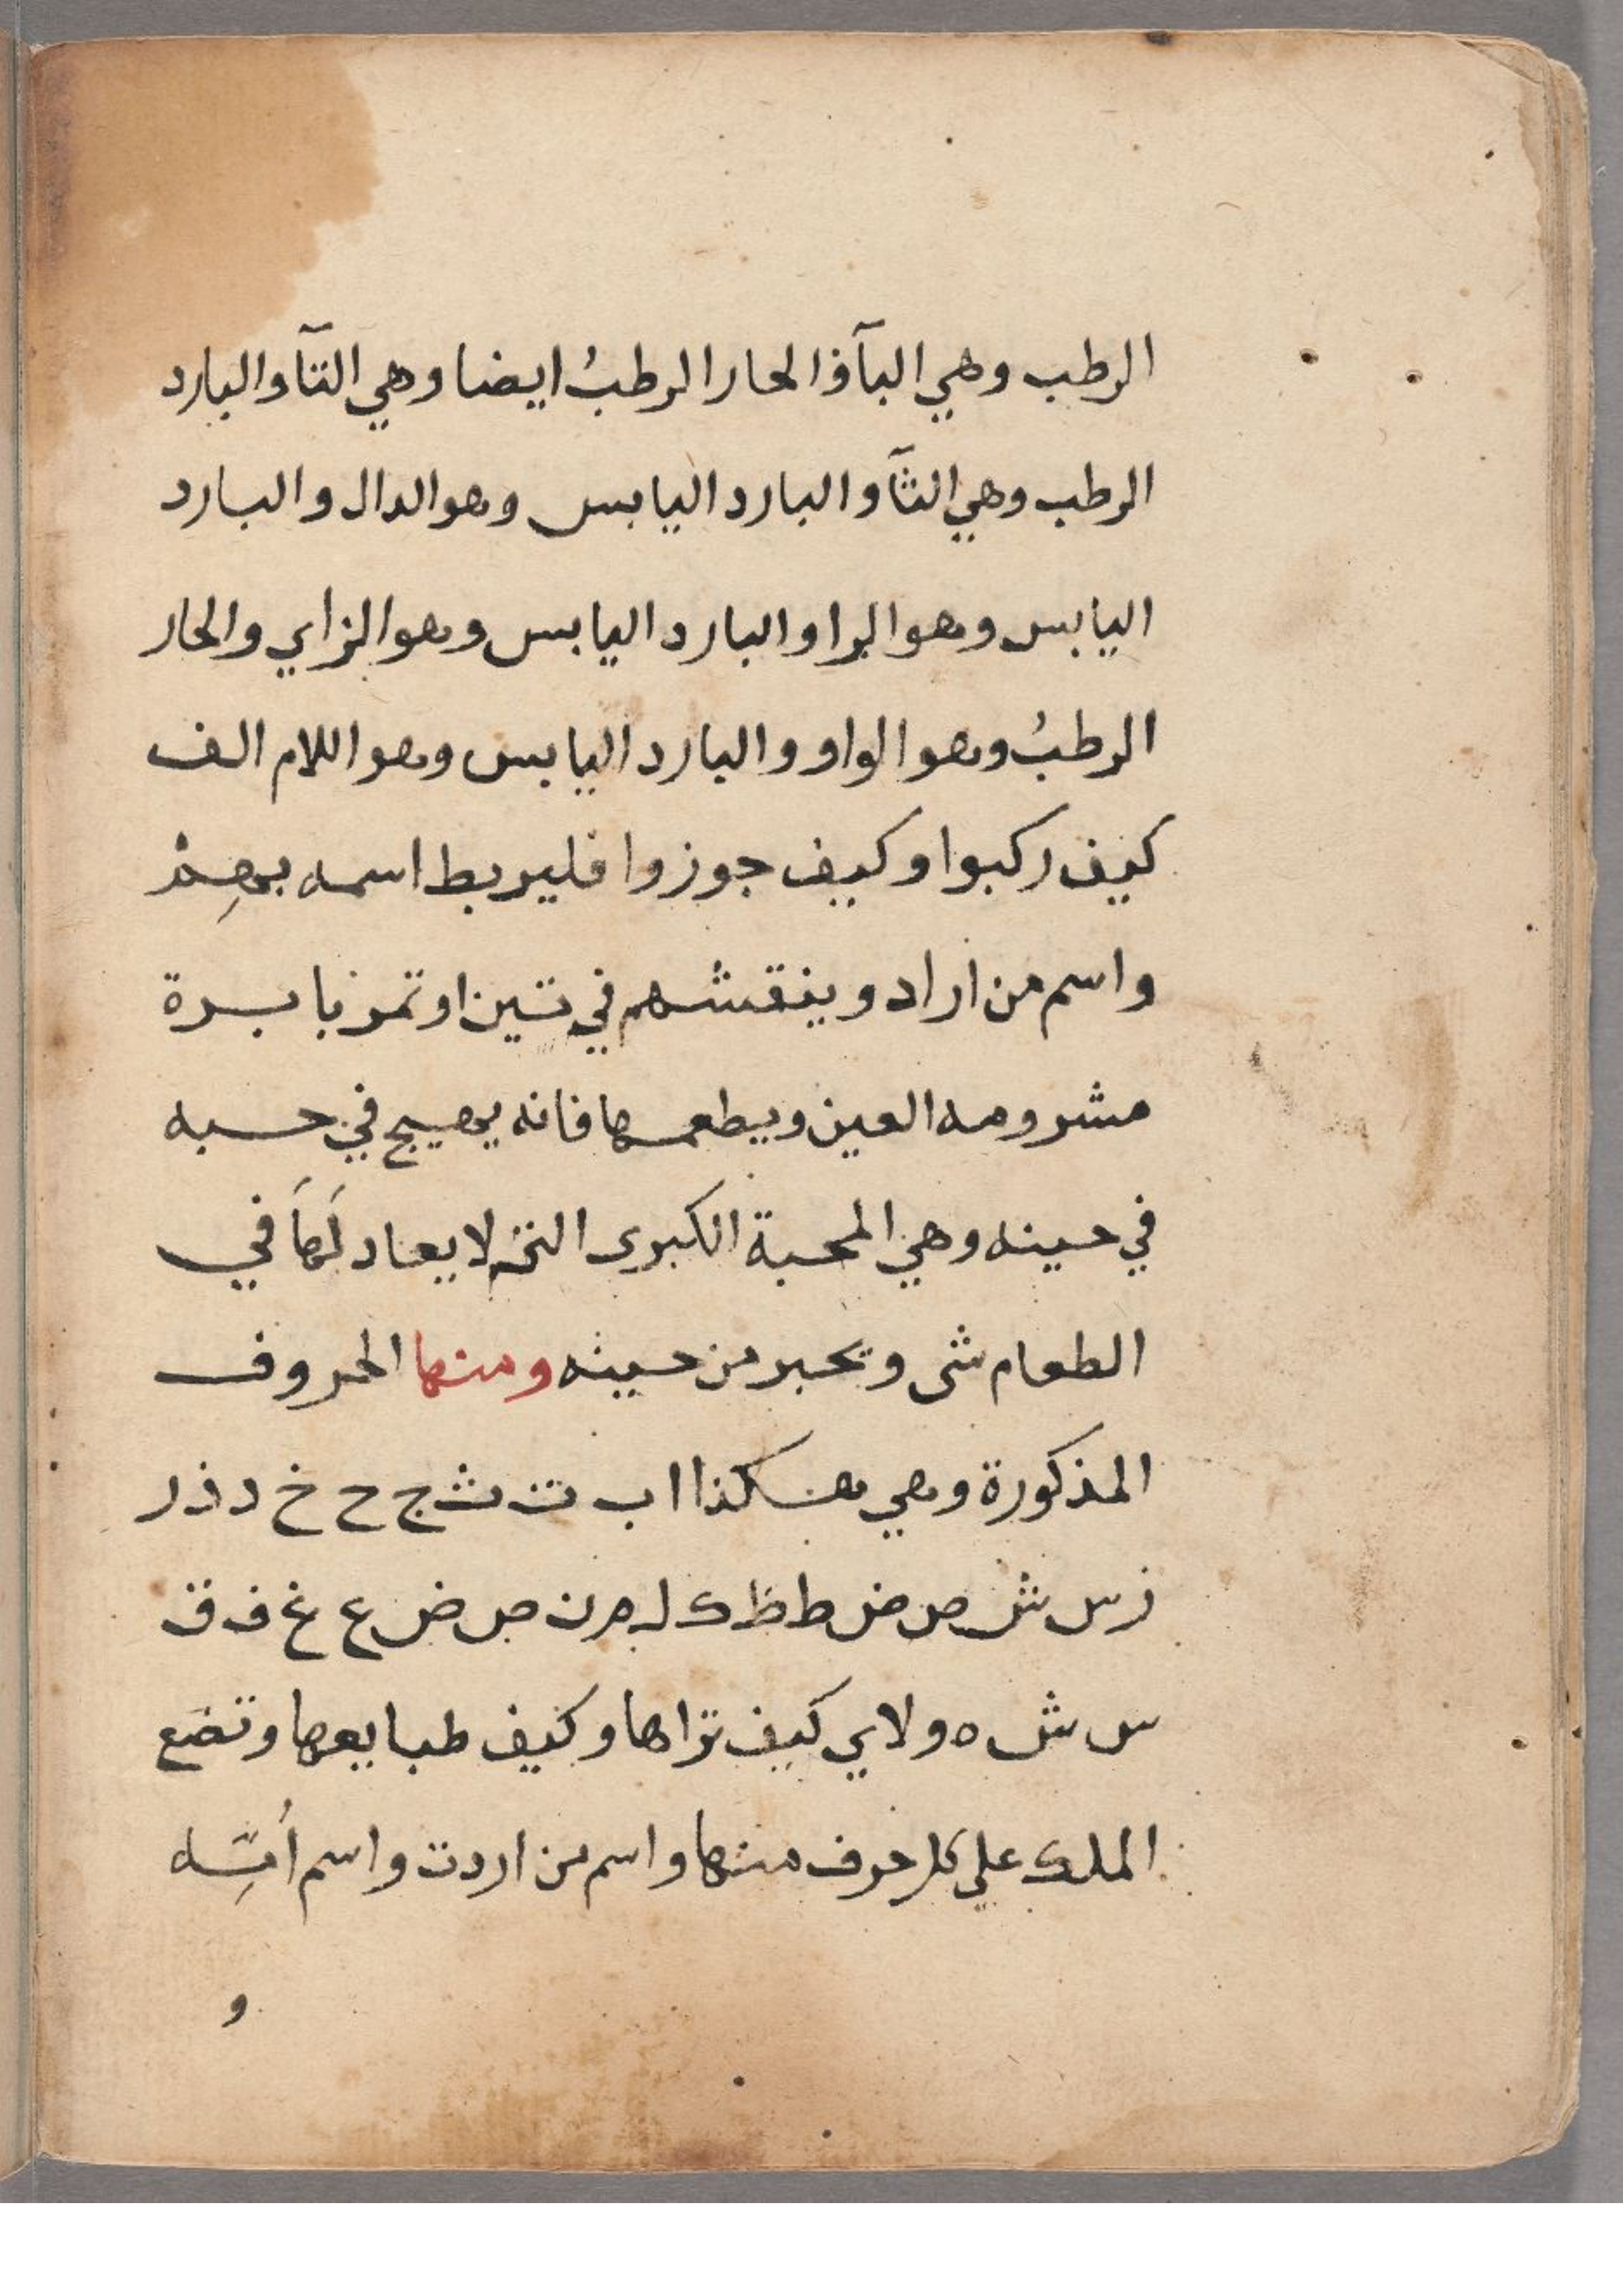 الرطب وهي البآ والحار الرطبُ ايضا وهي التآ والبارد
الرطب وهي الثآ والبارد اليابس وهو الدال والبارد
اليابس وهو الرا والبارد اليابس وهو الزاي والحار
الرطبُ وهو الواو والبارد اليابس وهو اللام الف
كيف ركبوا وكييف جوزوا فليربط اسمه بهِمْ
واسم من اراد وينقشهم في تين او تمر بابرة
مشرومه العين ويطعمها فانه يهيج في حبه
في حينه وهي المحبة الكبرى التي لا يعاد لَهَا في
الطعام شى ويحبر من حينه ومنها الحروف
المذكورة وهي هكذا ا ب ت ث ج ح خ د ذ ر
ز س ش ص ض ط ظ ك ل م ن ص ض ع غ ف ق
س ش ه و لا ي كيف تراها وكيف طبايعها وتضع
الملك علي كل حرف منها واسم من اردت واسم أمِّه
و